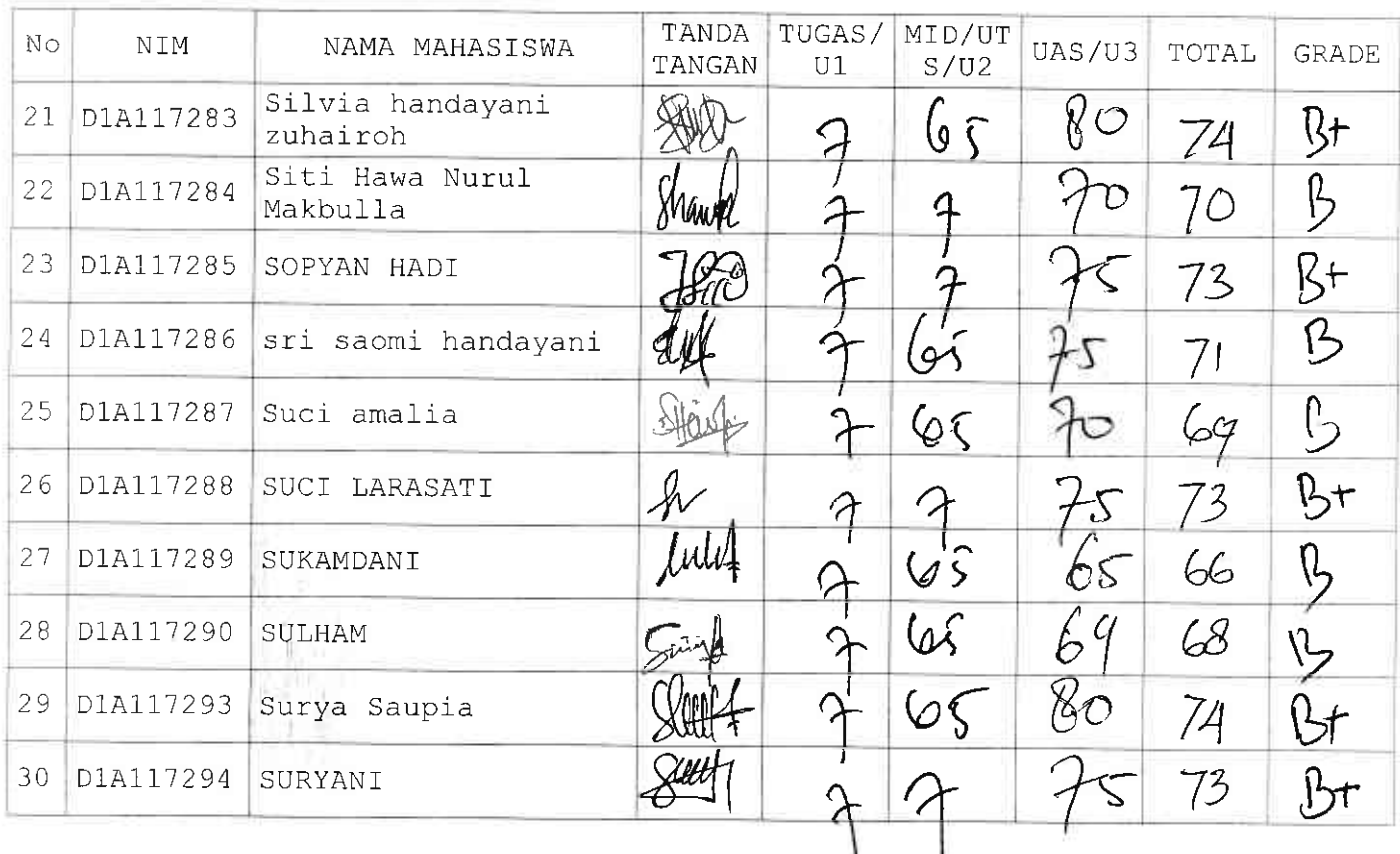 No NIM NAMA MAHASISWA TANDA TANGAN TUGAS/U1 MID/UTS/U2 UAS/U3 TOTAL GRADE
21 D1A117283 Silvia handayani zuhairoh 7 65 80 74 B+
22 D1A117284 Siti Hawa Nurul Makbulla 7 7 70 70 B
23 D1A117285 SOPYAN HADI 7 7 75 73 B+
24 D1A117286 sri saomi handayani 7 65 75 71 B
25 D1A117287 Suci amalia 7 65 70 69 B
26 D1A117288 SUCI LARASATI 7 7 75 73 B+
27 D1A117289 SUKAMDANI 7 65 65 66 B
28 D1A117290 SULHAM 7 65 69 68 B
29 D1A117293 Surya Saupia 7 65 80 74 B+
30 D1A117294 SURYANI 7 7 75 73 B+